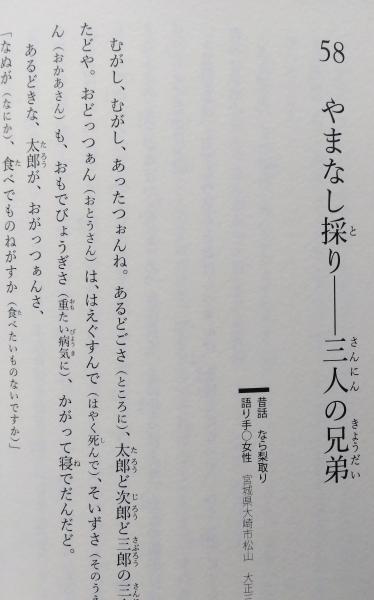 58 やまなし採り──三人の兄弟
昔話 なら梨取り
語り手○女性 宮城県大崎市松山 大正三
むがし、むがし、あったつぉんね。あるどごさ（ところに）、太郎ど次郎ど三郎の三
たどや。おどっつぁん（おとうさん）は、はえぐすんで（はやく死んで）、そいずさ（そのうえ
ん（おかあさん）も、おもでびょうぎさ（重たい病気に）、かがって寝でだんだど。
あるどきな、太郎が、おがっつぁんさ、
「なぬが（なにか）、食べでものねがすか（食べたいものないですか）」